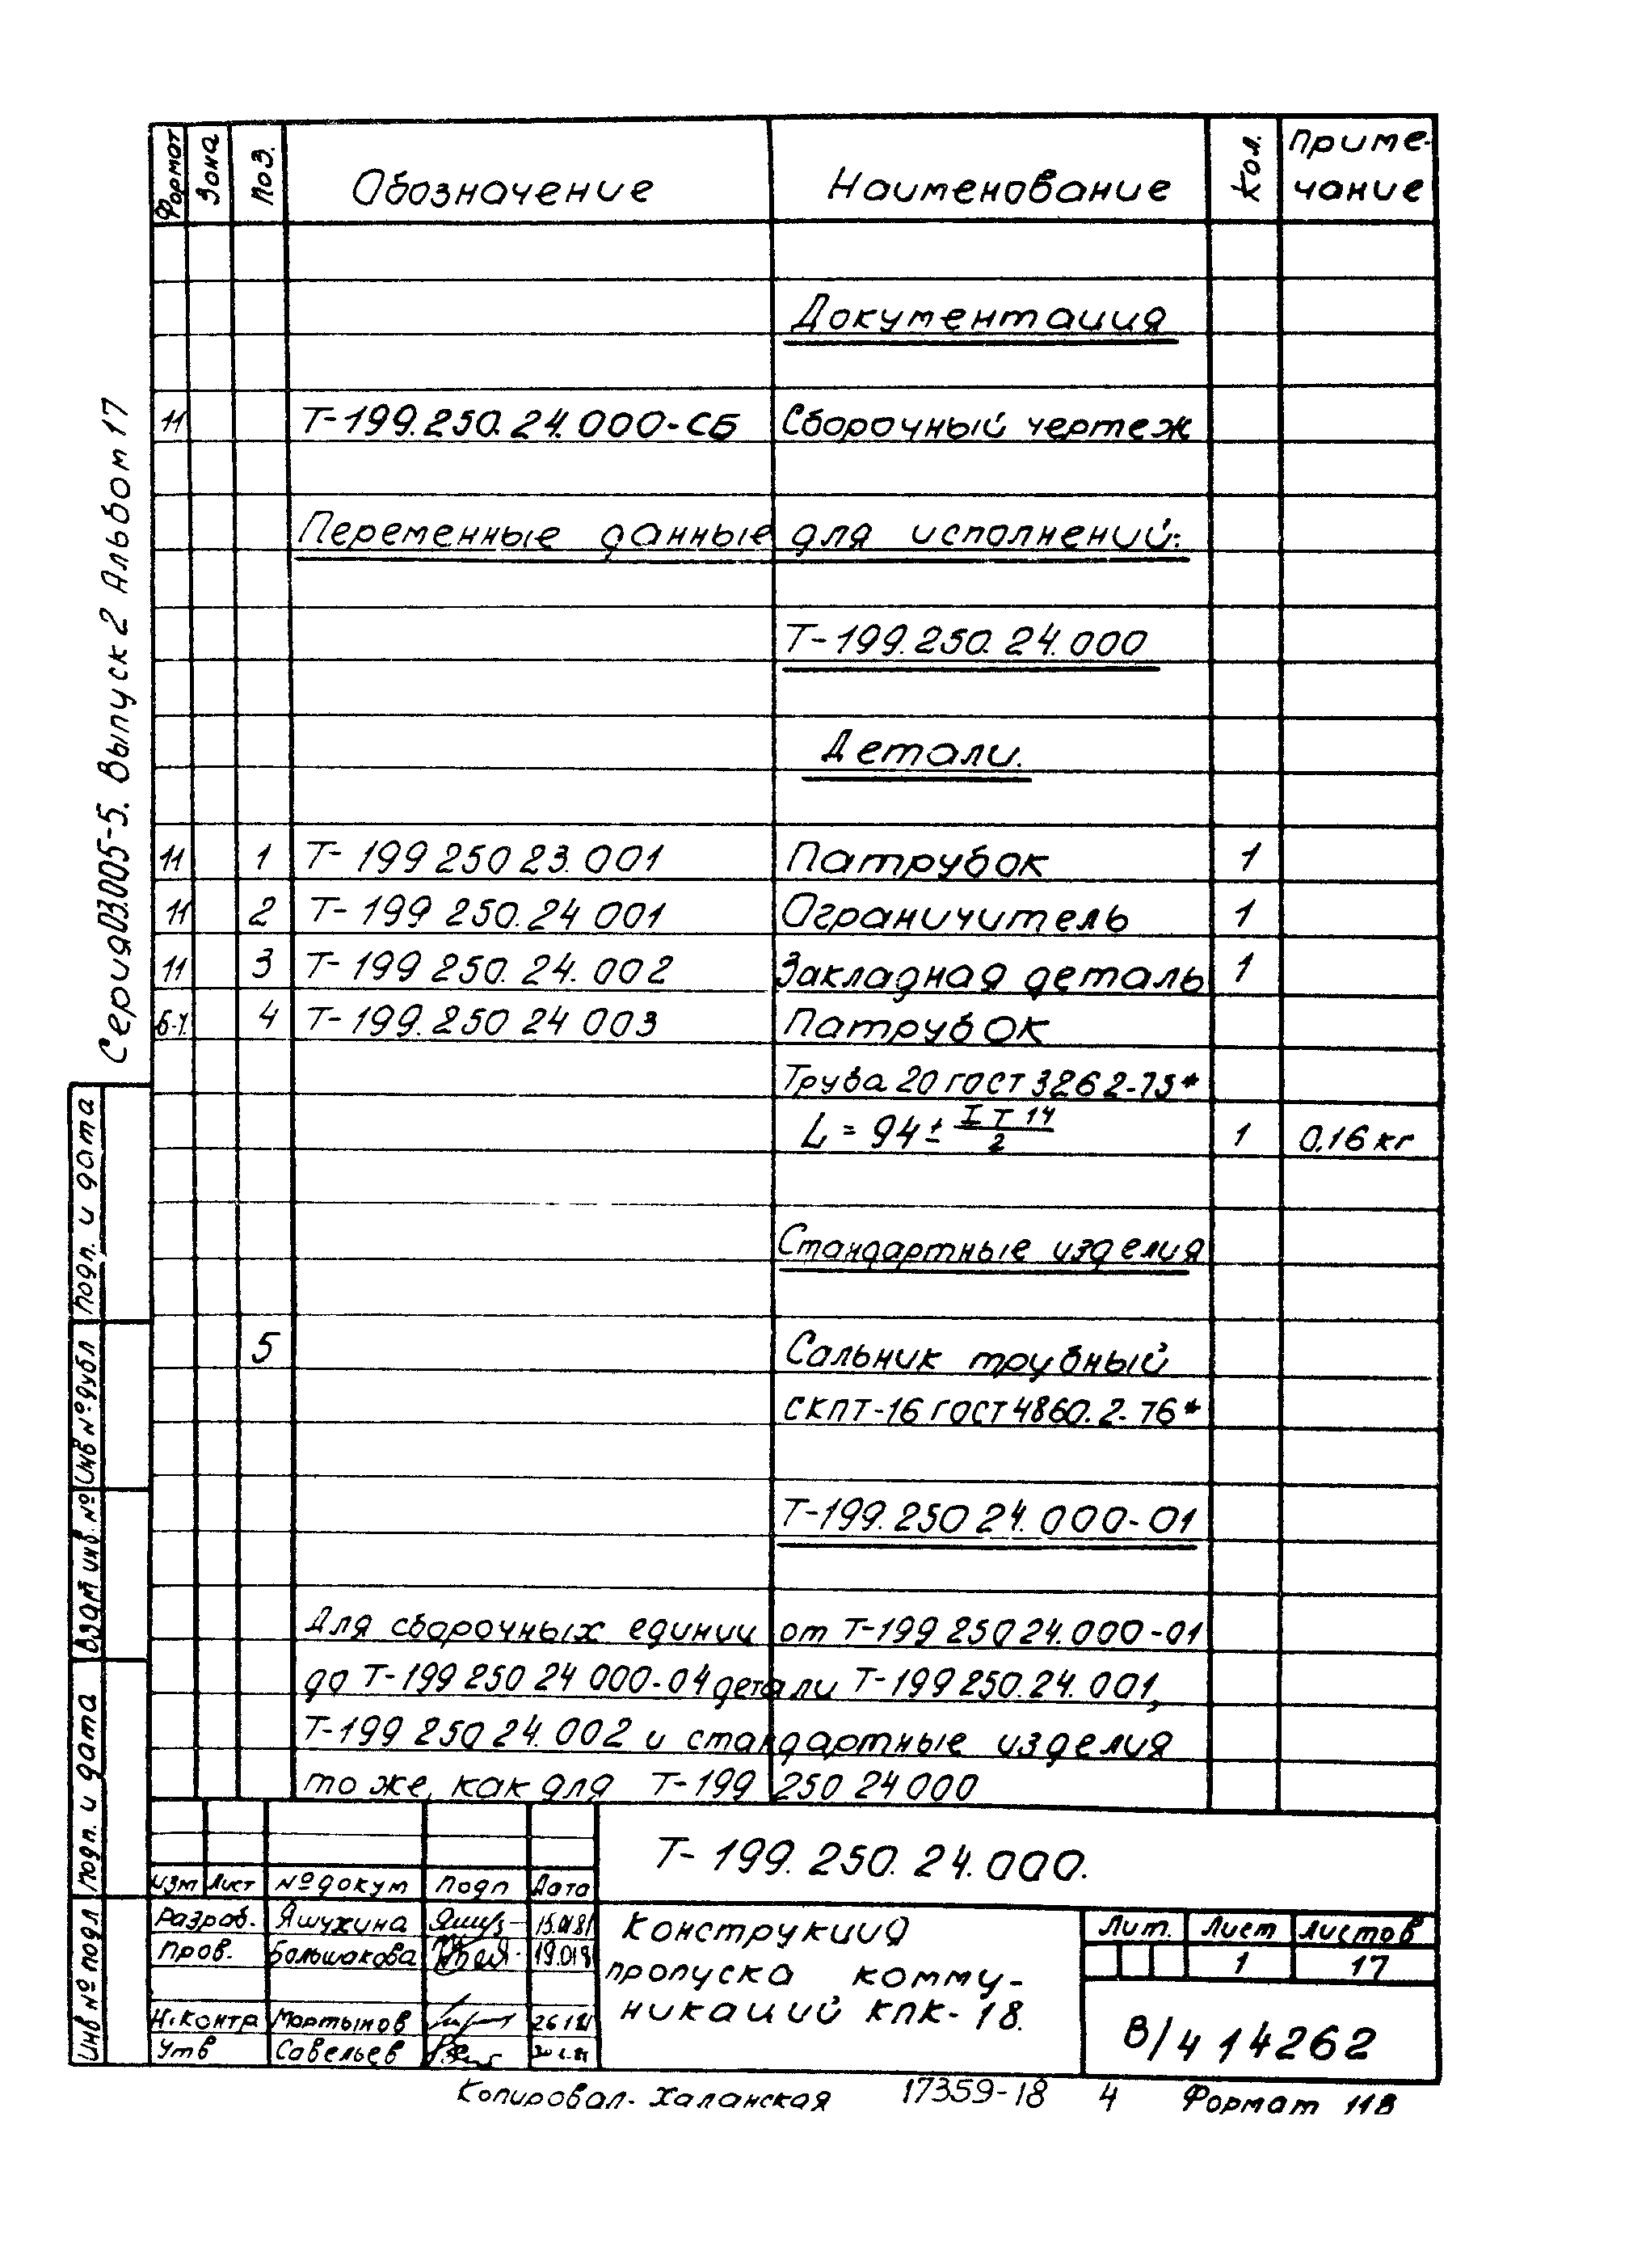 Формат Зона Поз. Обозначение Наименование Кол. Приме-
чание
Документация
11 Т-199.250.24.000-СБ Сборочный чертеж
Переменные данные для исполнений:
Т-199.250.24.000
Детали.
11 1 Т-199 250 23.001 Патрубок 1
11 2 Т-199 250.24 001 Ограничитель 1
11 3 Т-199 250.24.002 Закладная деталь 1
б.ч. 4 Т-199.250 24 003 Патрубок
Труба 20 ГОСТ 3262-75*
L = 94 ± IT 14/2 1 0,16 кг
Стандартные изделия
5 Сальник трубный
СКПТ-16 ГОСТ 4860.2-76*
Т-199.250 24.000-01
Для сборочных единиц от Т-199 250 24.000-01
до Т-199 250 24 000-04 детали Т-199 250.24.001,
Т-199 250 24.002 и стандартные изделия
то же, как для Т-199 250 24 000
Серия 03.005-5. Выпуск 2 Альбом 17
Подп. и дата
Инв № дубл
Взам инв. №
Подп. и дата
Инв № подл
Т-199.250.24.000.
Изм Лист № докум Подп Дата
Разраб. Яшухина 15.01.81
Пров. Большакова 19.01.81
Н.контр Мартынов 26.1.81
Утв Савельев
Конструкция
пропуска комму-
никаций КПК-18.
Лит. Лист Листов
1 17
В/ч 14262
Копировал. Халанская 17359-18 4 Формат 11В